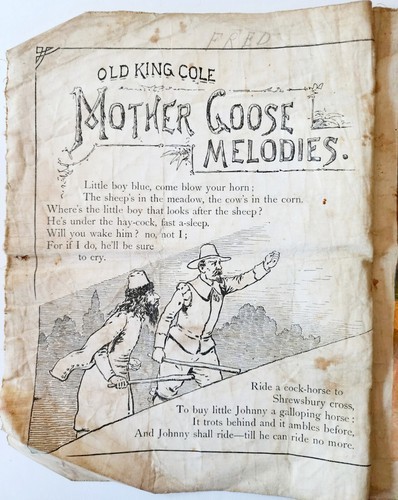 FRED
OLD KING COLE
MOTHER GOOSE
MELODIES.
Little boy blue, come blow your horn;
The sheep's in the meadow, the cow's in the corn.
Where's the little boy that looks after the sheep?
He's under the hay-cock, fast a-sleep.
Will you wake him? no, not I;
For if I do, he'll be sure
to cry.
Ride a cock-horse to
Shrewsbury cross,
To buy little Johnny a galloping horse:
It trots behind and it ambles before,
And Johnny shall ride—till he can ride no more.